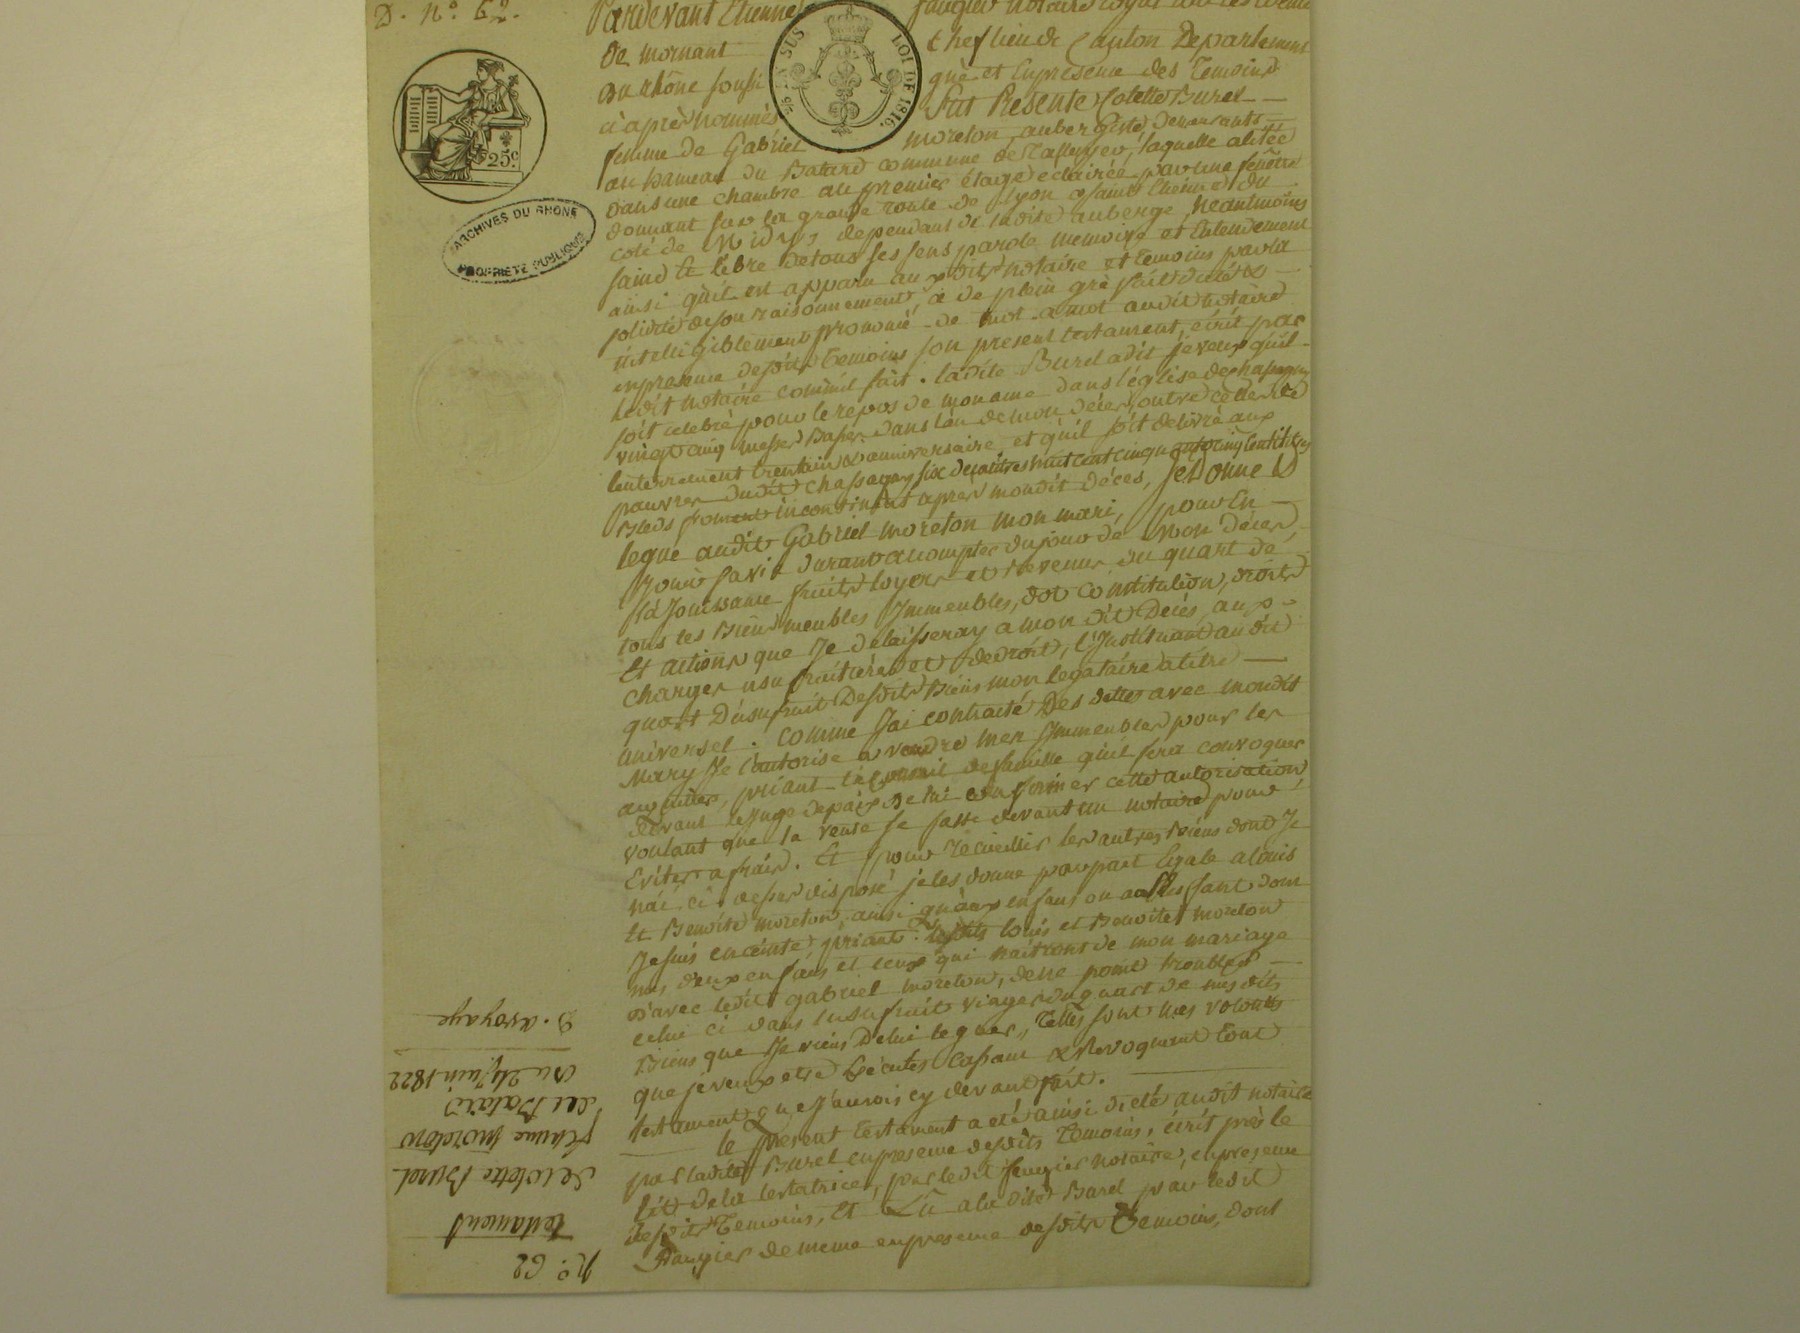 D. N.° 62.
Pardevant Etienne faugier notaire royal
de mornant chef lieu de Canton Departement
du rhône soussi gné et En presence des Temoins
ci après nommés fut Presente Colette Burel
femme de Gabriel moreton aubergiste, demeurants
au hameau du Batard commune de Tassussieu, laquelle alitée
dans une chambre au premier étage eclairée par une fenêtre
donnant sur la grande route de Lyon a Saint Etienne du
coté de midy, dependant de ladite auberge, Neantmoins
saine Et libre de tous ses sens parole memoire et Entendement
ainsi qu'il est apparu auxdits notaire et temoins par la
solidité de son raisonnement, a de plein gré fait dicté &
intelligiblement prononcé de mot a mot audit notaire
en presence desdits temoins son present testament, écrit par
ledit notaire comm'il suit. ladite Burel a dit je veux qu'il
soit celebré pour le repos de mon ame dans l'église de chassagny
vingt cinq messes Basses dans l'an de mon décès, outre celles de
l'enterrement trentain & anniversaire, et qu'il soit délivré aux
pauvres dudit chassagny six decalitres huit cent cinquante cinq centilitres
Bleds froment incontinent après mondit décès, je Donne &
legue audit Gabriel moreton mon mari, pour En
Jouir sa vie durant a compter du jour de mon décès,
la Jouissance fruits loyers et Revenus du quart de
tous les Biens meubles Immeubles, dot constitution, droits
Et actions que Je délaisseray a mon dit Décés, aux
charges usufruitières et de droit, l'Instituant audit
quart D'usufruit Desdits Biens mon legataire a titre
universel. Comme J'ai contracté des dettes avec mondit
Mary Je l'autorise a vendre mes Immeubles pour les
acquitter, priant le Conseil de famille qu'il fera convoquer
devant le juge de paix de lui confirmer cette autorisation
voulant que la vente se fasse devant un notaire pour
Eviter a frais. Et pour Recueillir les autres Biens dont Je
n'ai ci-dessus disposé je les donne par part Egale a louis
Et Benoite moreton, ainsi qu'aux enfans ou enfant dont
Je suis enceinte priant lesdits louis et Benoite moreton
mes deux enfans et ceux qui naitront de mon mariage
d'avec ledit gabriel moreton, de ne point troubler
celui ci dans l'usufruit viager du quart de mes dits
Biens que Je viens De lui leguer, Telles sont mes volontés
que je veux etre Exécutés Cassant & Revoquant tout
testament que J'aurois cy devant fait.
le present testament a eté ainsi dicté audit notaire
par ladite Burel en presence desdits Temoins, écrit près le
lit de la testatrice, par ledit faugier notaire, en presence
desdits Temoins, Et Lû a la dite Burel par ledit
Faugier de meme en presence desdits Temoins, dont
LOI DE 1816.
EN SUS
25c
ARCHIVES DU RHÔNE
PROPRIÉTÉ PUBLIQUE
N.° 62
Testament
de Colette Burel
femme Moreton
du Batard
du 24 Juin 1822